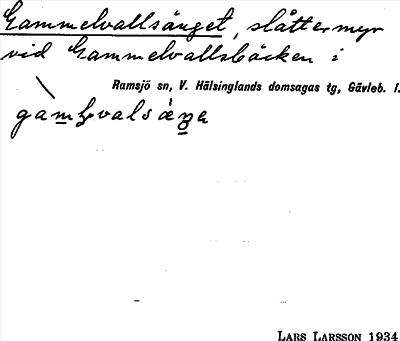 Gammelvallsänget, slåttermyr
vid Gammelvallsbäcken i
Ramsjö sn, V. Hälsinglands domsagas tg, Gävleb. l.
LARS LARSSON 1934